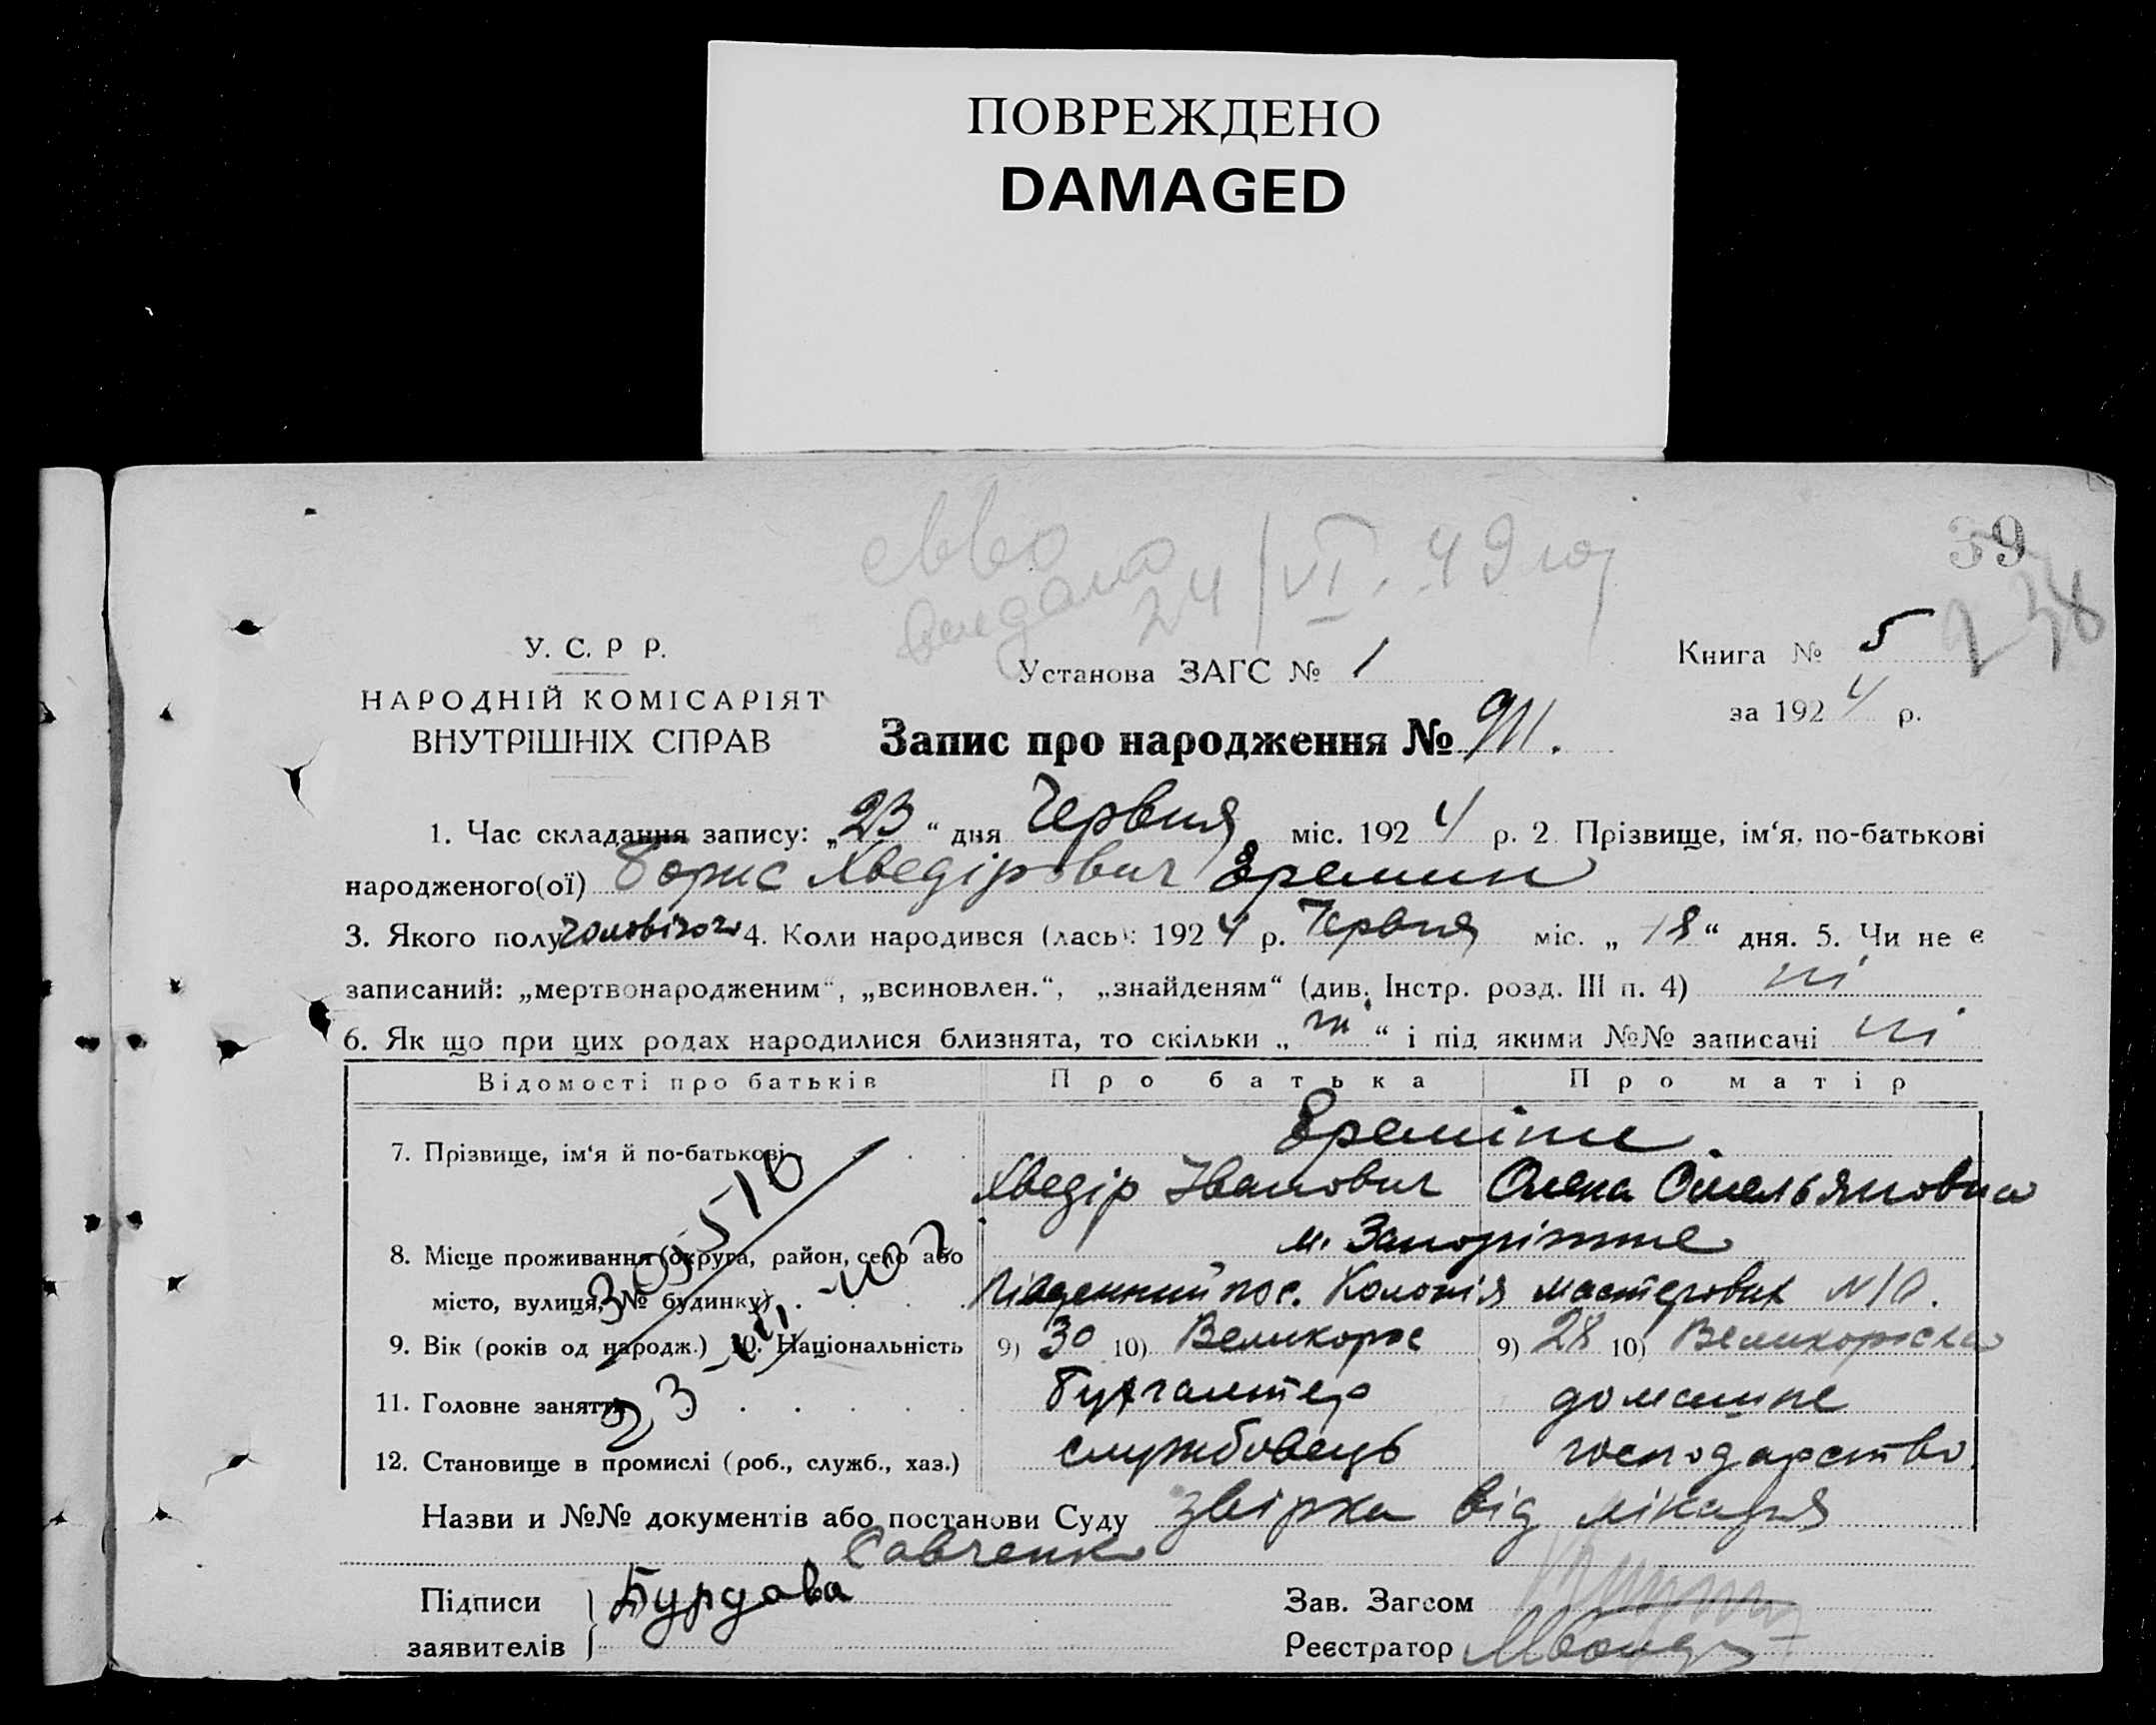 ПОВРЕЖДЕНО
DAMAGED
39
видано
24/VI. 49
238
У. С. Р Р.
НАРОДНІЙ КОМІСАРІЯТ
ВНУТРІШНІХ СПРАВ
Установа ЗАГС № 1
Книга № 5
за 1924 р.
Запис про народження № 911.
1. Час складання запису: „23“ дня Червня міс. 1924 р. 2 Прізвище, ім‘я, по-батькові
народженого(ої) Борис Хведірович Еремин
3. Якого полу чоловічого 4. Коли народився (лась): 1924 р. Червня міс. „18“ дня. 5. Чи не є
записаний: „мертвонародженим“, „всиновлен.“, „знайденям“ (див. Інстр. розд. III п. 4) ні
6. Як що при цих родах народилися близнята, то скільки „ні“ і під якими №№ записані ні
Відомості про батьків Про батька Про матір
Ереміни
7. Прізвище, ім‘я й по-батькові
Хведір Іванович Олена Омельяновна
м. Запоріжже
8. Місце проживання (округа, район, село або
місто, вулиця, № будинку) Південний пос. Колонія мастерових N 10.
9. Вік (років од народж.) 10. Національність 9) 30 10) Великорос 9) 28 10) Великороска
11. Головне заняття Бухгалтер домашне
12. Становище в промислі (роб., служб., хаз.) службовець господарство.
Назви и №№ документів або постанови Суду звірка від лікаря
Савченко
Підписи Бурдова
заявителів
Зав. Загсом
Реєстратор